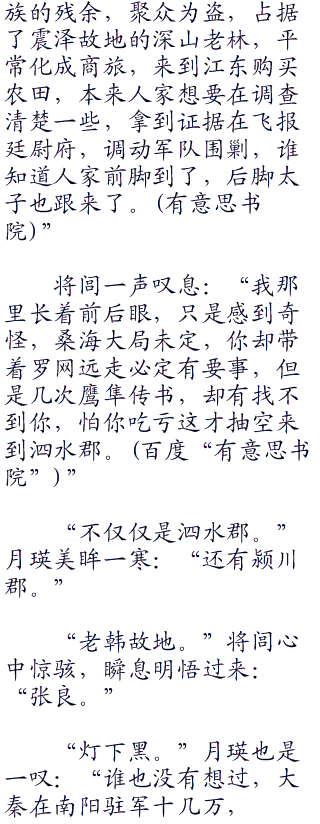 族的残余，聚众为盗，占据
了震泽故地的深山老林，平
常化成商旅，来到江东购买
农田，本来人家想要在调查
清楚一些，拿到证据在飞报
廷尉府，调动军队围剿，谁
知道人家前脚到了，后脚太
子也跟来了。(有意思书
院)”
将闾一声叹息：“我那
里长着前后眼，只是感到奇
怪，桑海大局未定，你却带
着罗网远走必定有要事，但
是几次鹰隼传书，却有找不
到你，怕你吃亏这才抽空来
到泗水郡。(百度“有意思书
院”)”
“不仅仅是泗水郡。”
月瑛美眸一寒：“还有颍川
郡。”
“老韩故地。”将闾心
中惊骇，瞬息明悟过来：
“张良。”
“灯下黑。”月瑛也是
一叹：“谁也没有想过，大
秦在南阳驻军十几万，